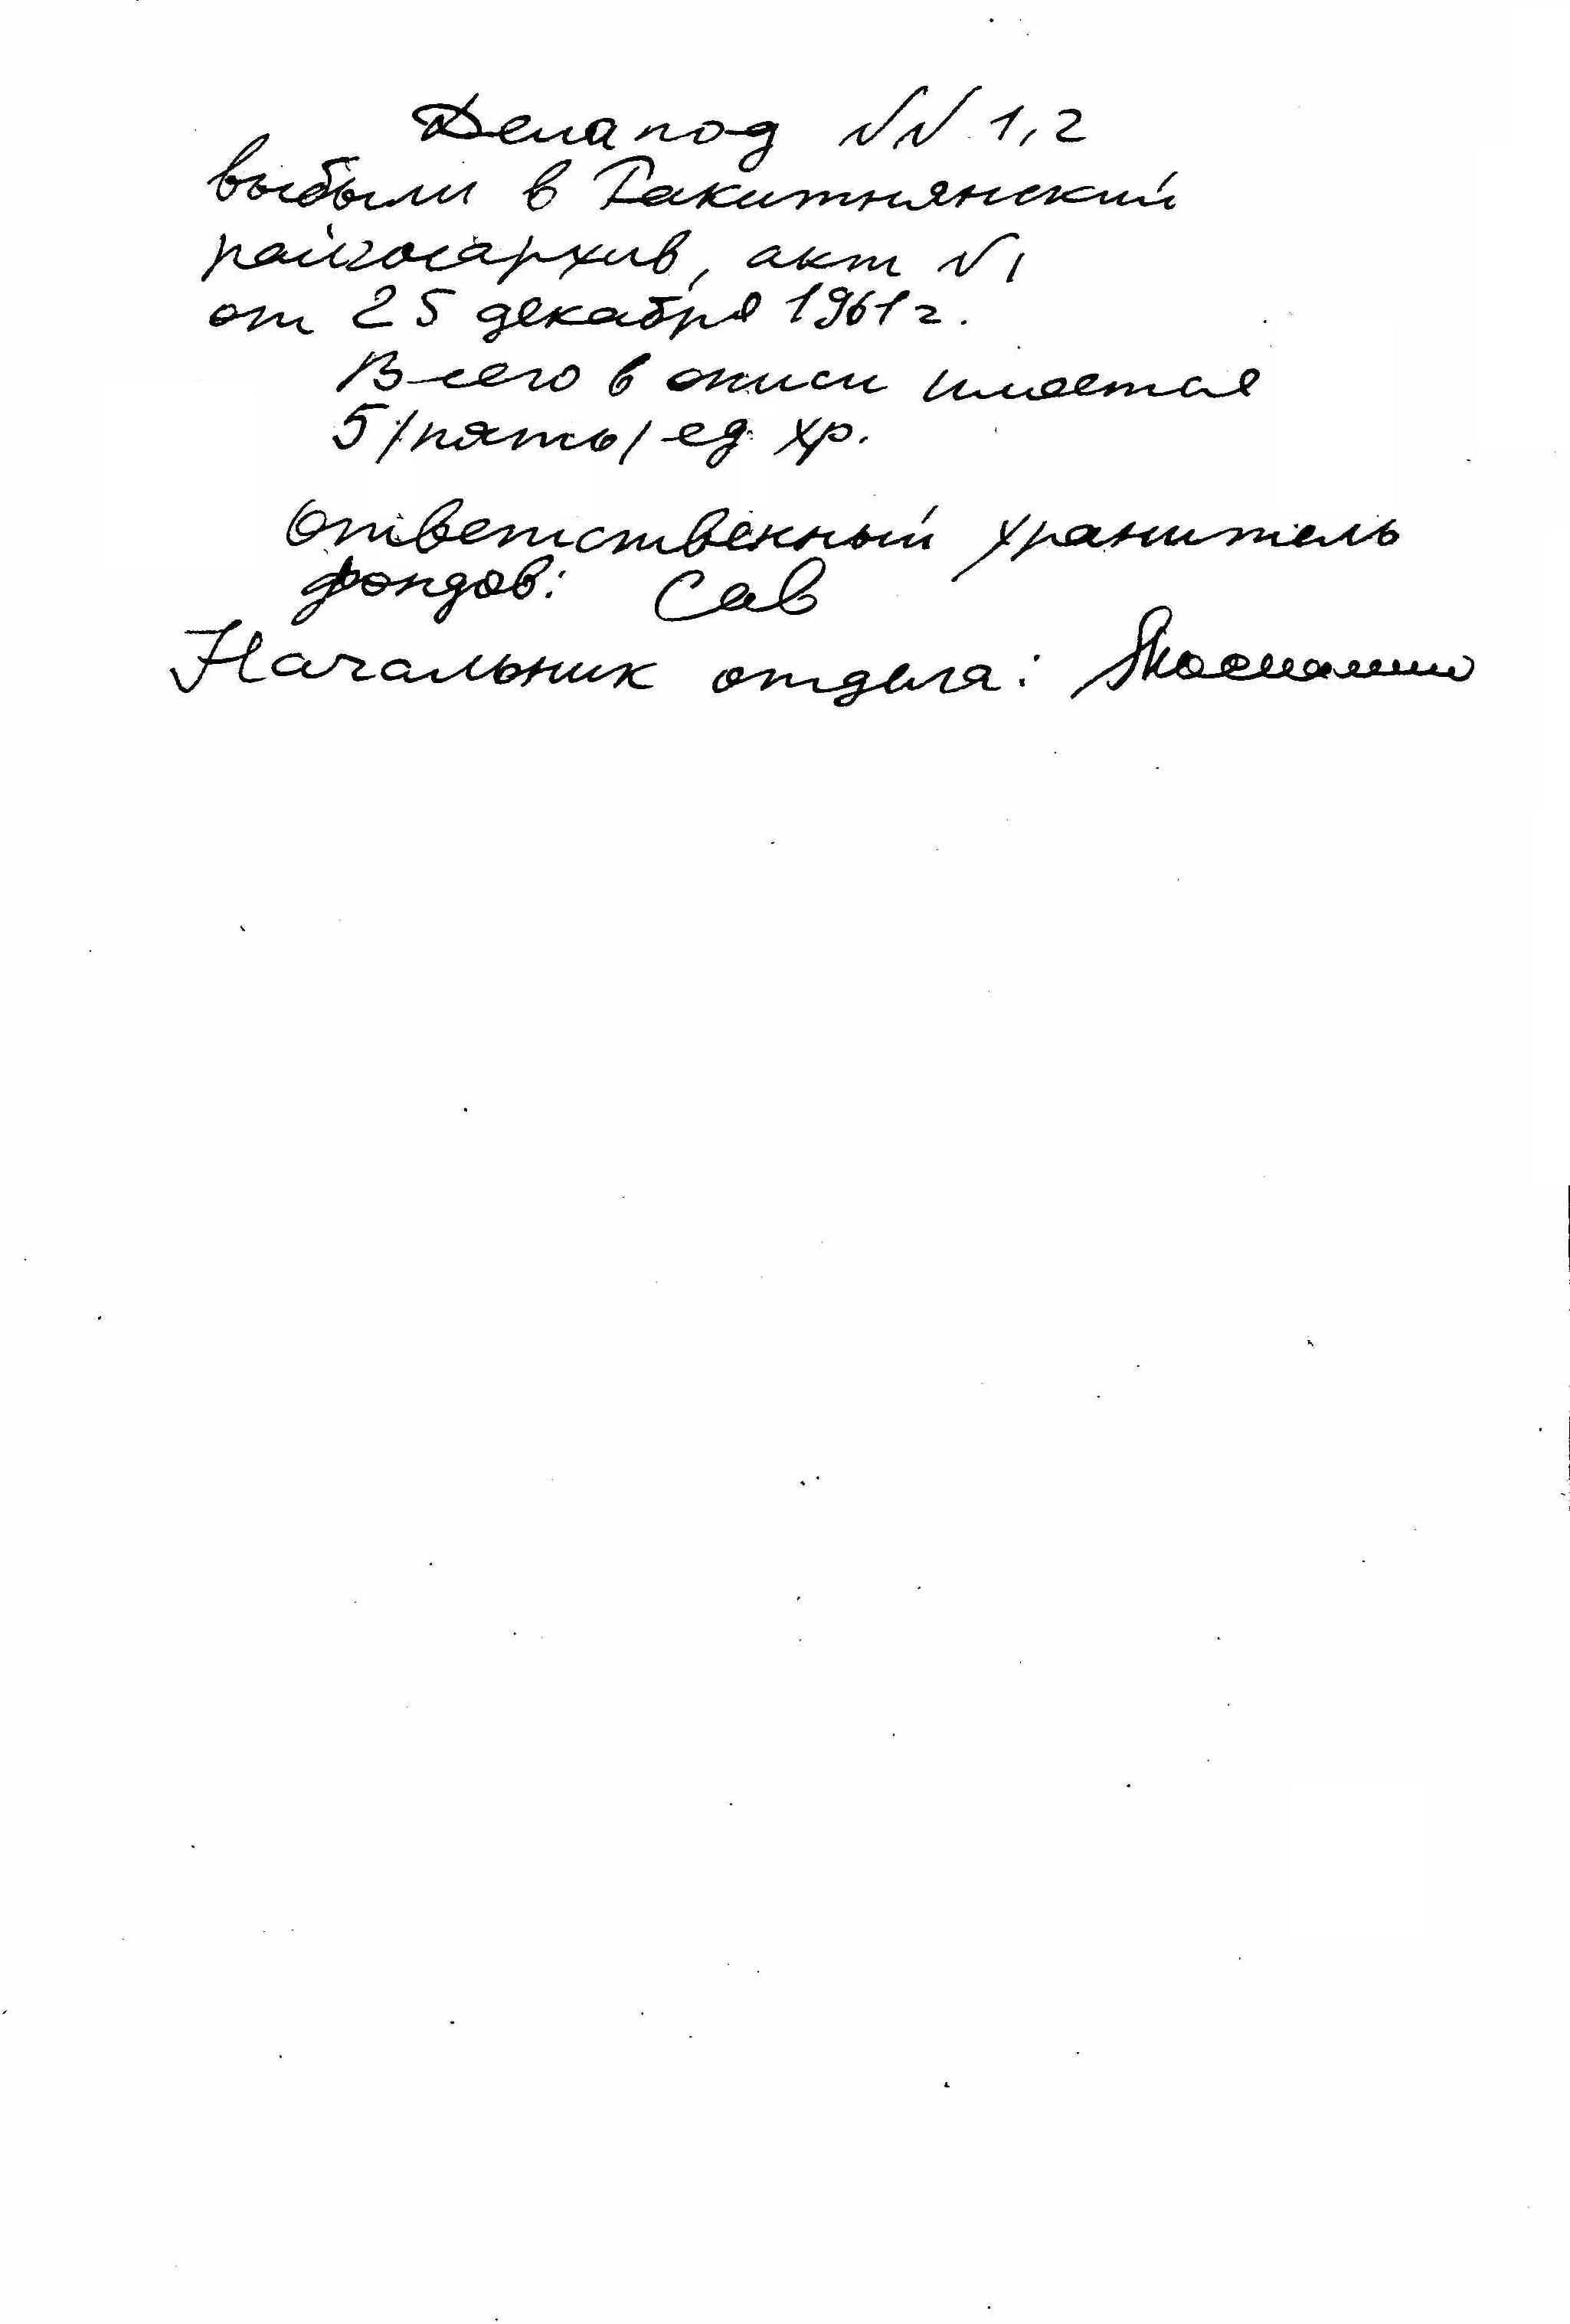 Дела под №№ 1,2
выбыли в Ракитнянский
райгосархив, акт №1
от 25 декабря 1961 г.
Всего в описи имеется
5 /пять/ ед. хр.
Ответственный хранитель
фондов: Сав
Начальник отдела: